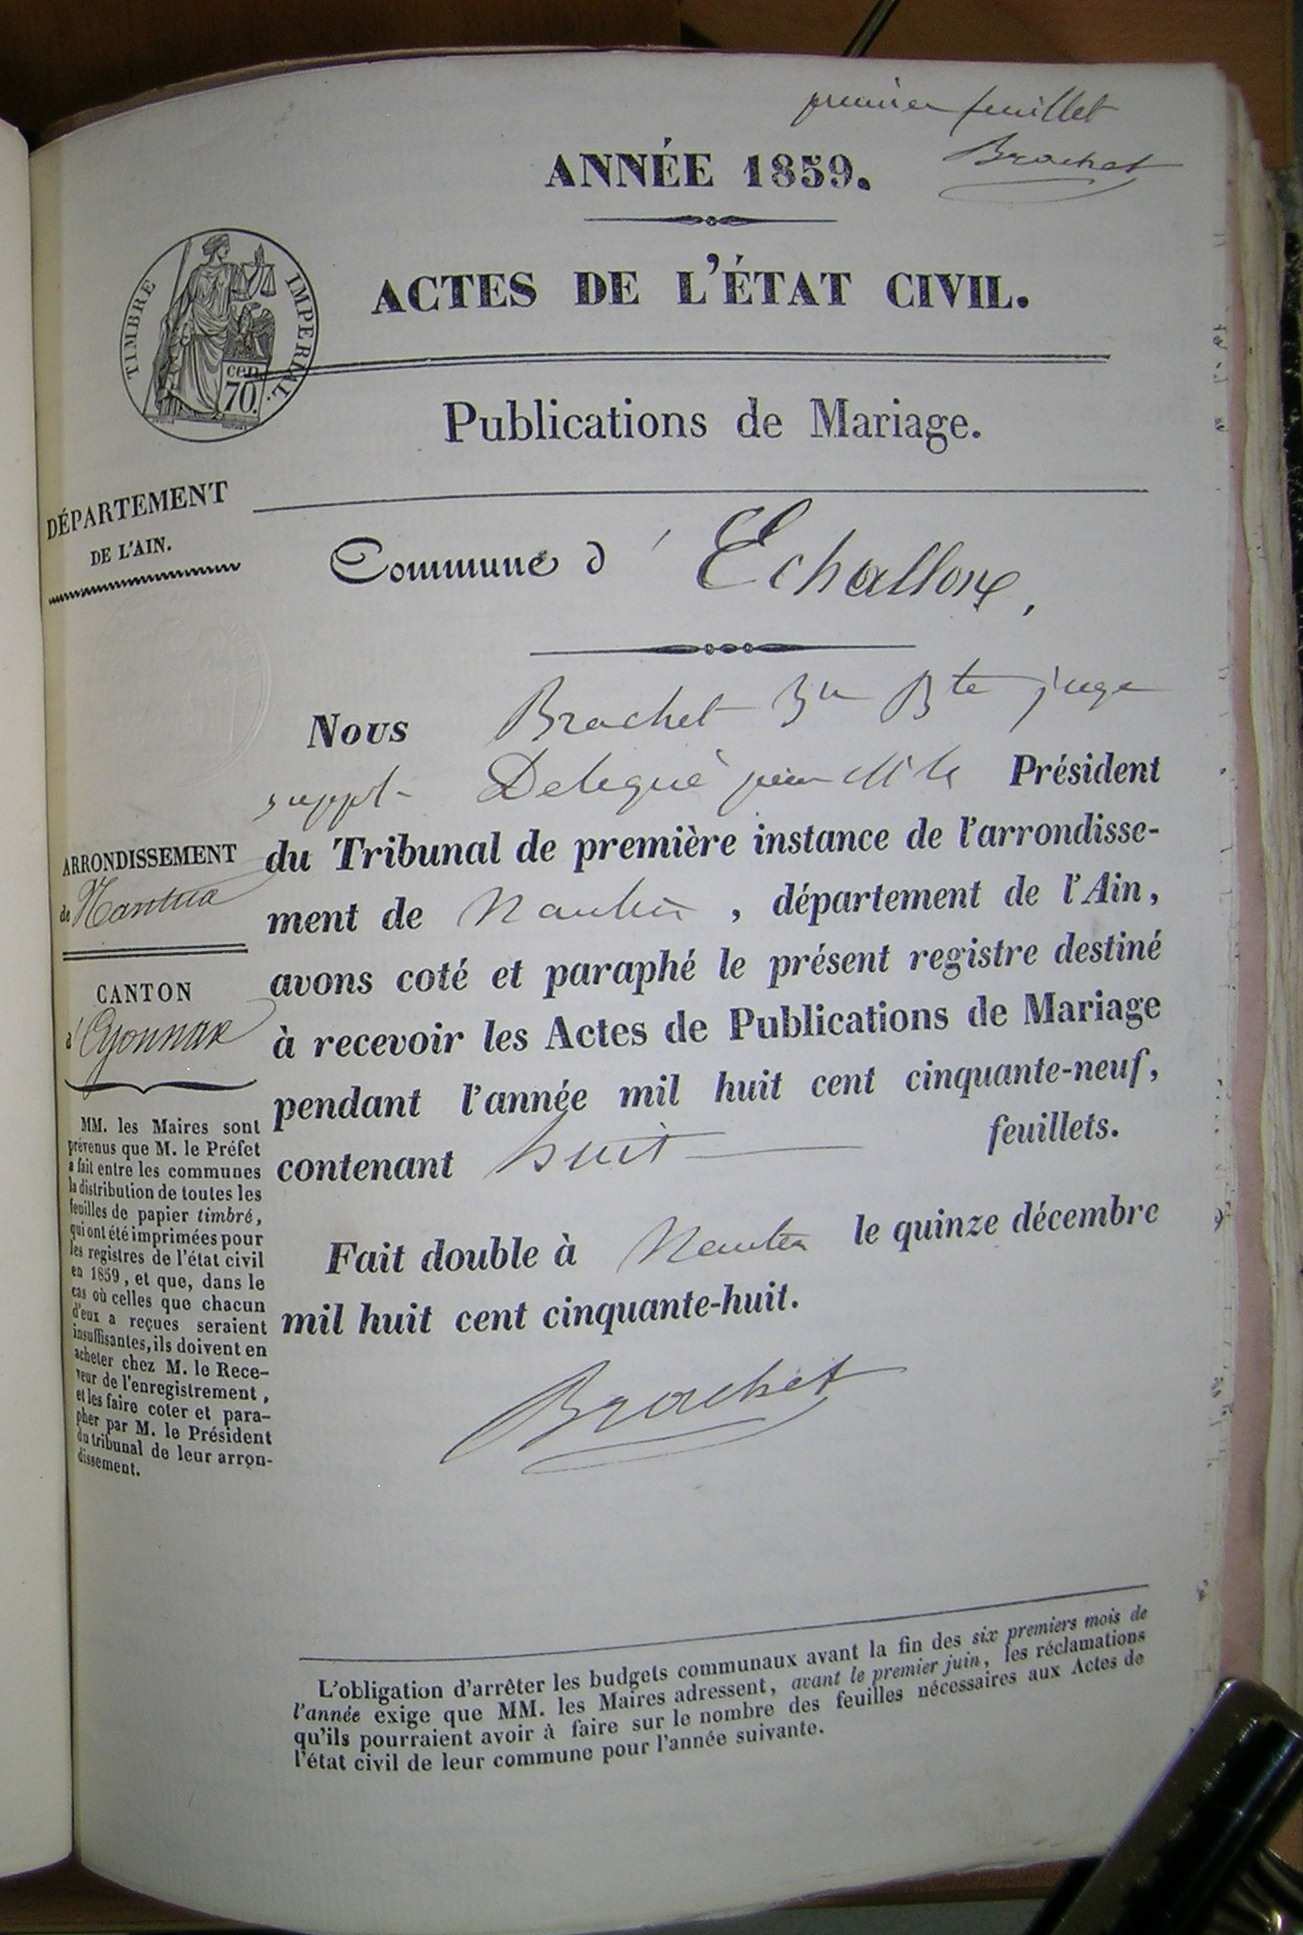 premier feuillet
Brachet
ANNÉE 1859.
ACTES DE L'ÉTAT CIVIL.
TIMBRE IMPERIAL.
cen
70.
Publications de Mariage.
DÉPARTEMENT
DE L'AIN.
Commune d' Echallon,
Nous Brachet Bte juge
suppt Delegué pour Mr le Président
du Tribunal de première instance de l'arrondisse-
ment de Nantua, département de l'Ain,
avons coté et paraphé le présent registre destiné
à recevoir les Actes de Publications de Mariage
pendant l'année mil huit cent cinquante-neuf,
contenant huit feuillets.
Fait double à Nantua le quinze décembre
mil huit cent cinquante-huit.
Brachet
ARRONDISSEMENT
de Nantua
CANTON
d'Oyonnax
MM. les Maires sont
prévenus que M. le Préfet
a fait entre les communes
la distribution de toutes les
feuilles de papier timbré,
qui ont été imprimées pour
les registres de l'état civil
en 1859, et que, dans le
cas où celles que chacun
d'eux a reçues seraient
insuffisantes, ils doivent en
acheter chez M. le Rece-
veur de l'enregistrement,
et les faire coter et para-
pher par M. le Président
du tribunal de leur arron-
dissement.
L'obligation d'arrêter les budgets communaux avant la fin des six premiers mois de
l'année exige que MM. les Maires adressent, avant le premier juin, les réclamations
qu'ils pourraient avoir à faire sur le nombre des feuilles nécessaires aux Actes de
l'état civil de leur commune pour l'année suivante.